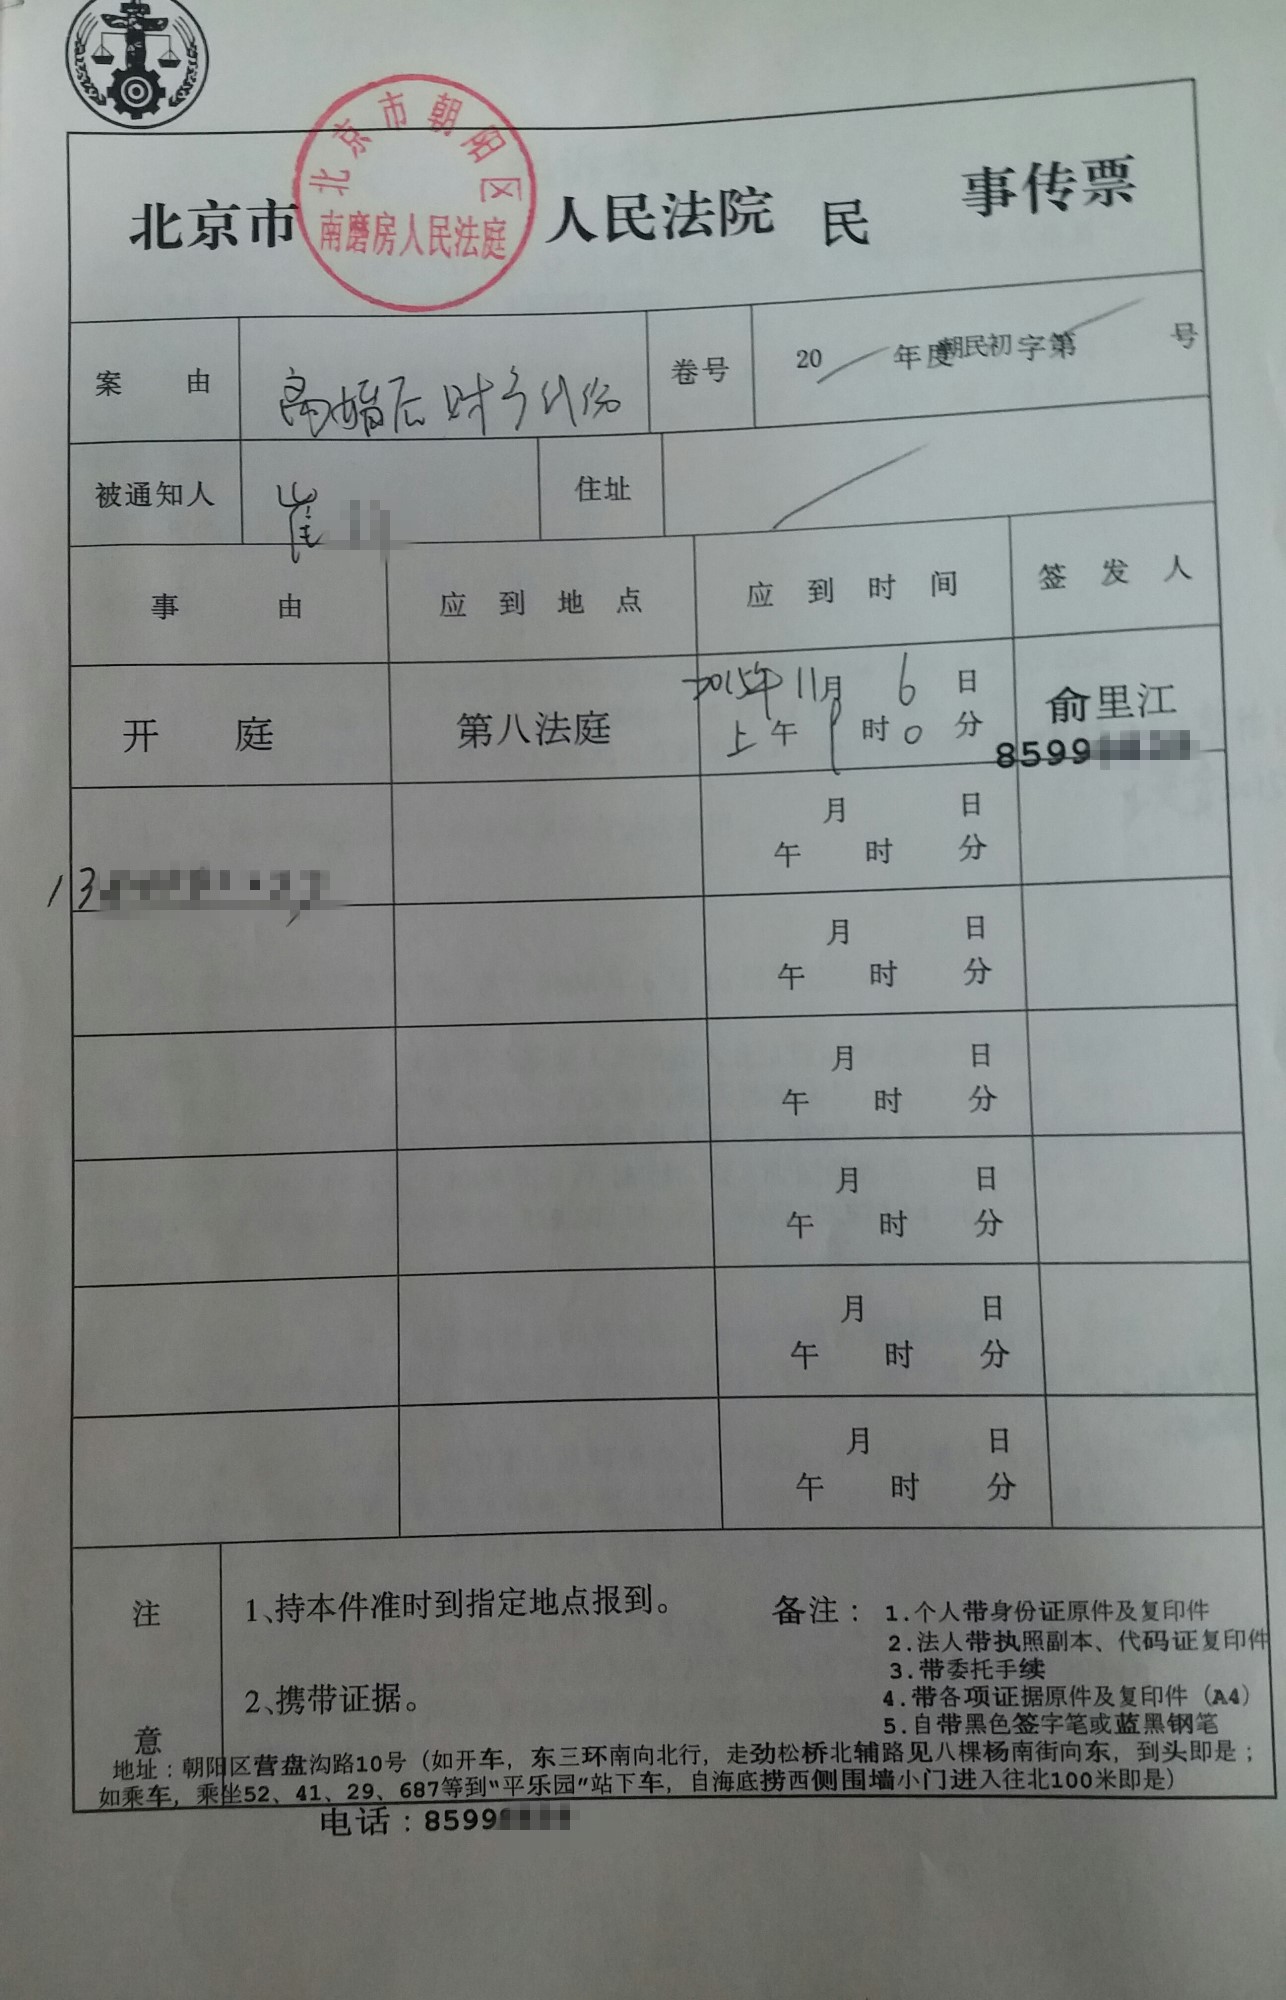 北京市朝阳区
南磨房人民法庭
北京市 人民法院 民 事传票
案由 离婚后财产纠纷 卷号 20 年度朝民初字第 号
被通知人 崔 住址
事由 应到地点 应到时间 签发人
开庭 第八法庭 2015年11月6日 俞里江
上午9时0分 8599
月 日
午 时 分
13
月 日
午 时 分
月 日
午 时 分
月 日
午 时 分
月 日
午 时 分
月 日
午 时 分
注意
1、持本件准时到指定地点报到。
2、携带证据。
备注：1.个人带身份证原件及复印件
2.法人带执照副本、代码证复印件
3.带委托手续
4.带各项证据原件及复印件（A4）
5.自带黑色签字笔或蓝黑钢笔
地址：朝阳区营盘沟路10号（如开车，东三环南向北行，走劲松桥北辅路见八棵杨南街向东，到头即是；
如乘车，乘坐52、41、29、687等到“平乐园”站下车，自海底捞西侧围墙小门进入往北100米即是）
电话：8599